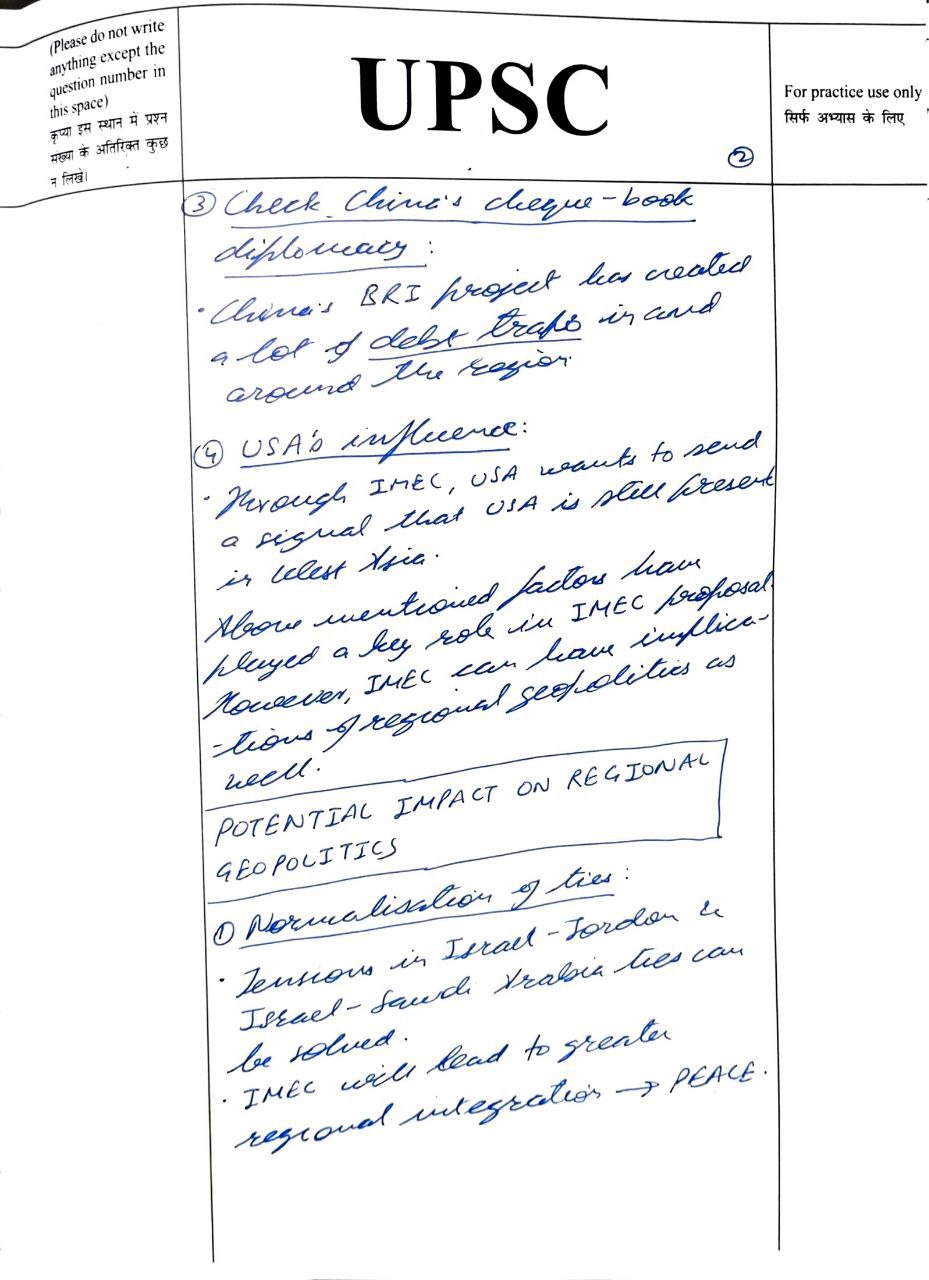 (Please do not write
anything except the
question number in
this space)
कृप्या इस स्थान में प्रश्न
संख्या के अतिरिक्त कुछ
न लिखें।
UPSC
For practice use only
सिर्फ अभ्यास के लिए
2
3 Check China's cheque-book
diplomacy:
· China's BRI project has created
a lot of debt traps in and
around the region
4 USA's influence:
· Through IMEC, USA wants to send
a signal that USA is still present
in West Asia.
Above mentioned factors have
played a key role in IMEC proposal.
However, IMEC can have implica-
-tions of regional geopolitics as
well.
POTENTIAL IMPACT ON REGIONAL
GEOPOLITICS
1 Normalisation of ties:
· Tensions in Israel-Jordan &
Israel-Saudi Arabia ties can
be solved.
· IMEC will lead to greater
regional integration → PEACE.